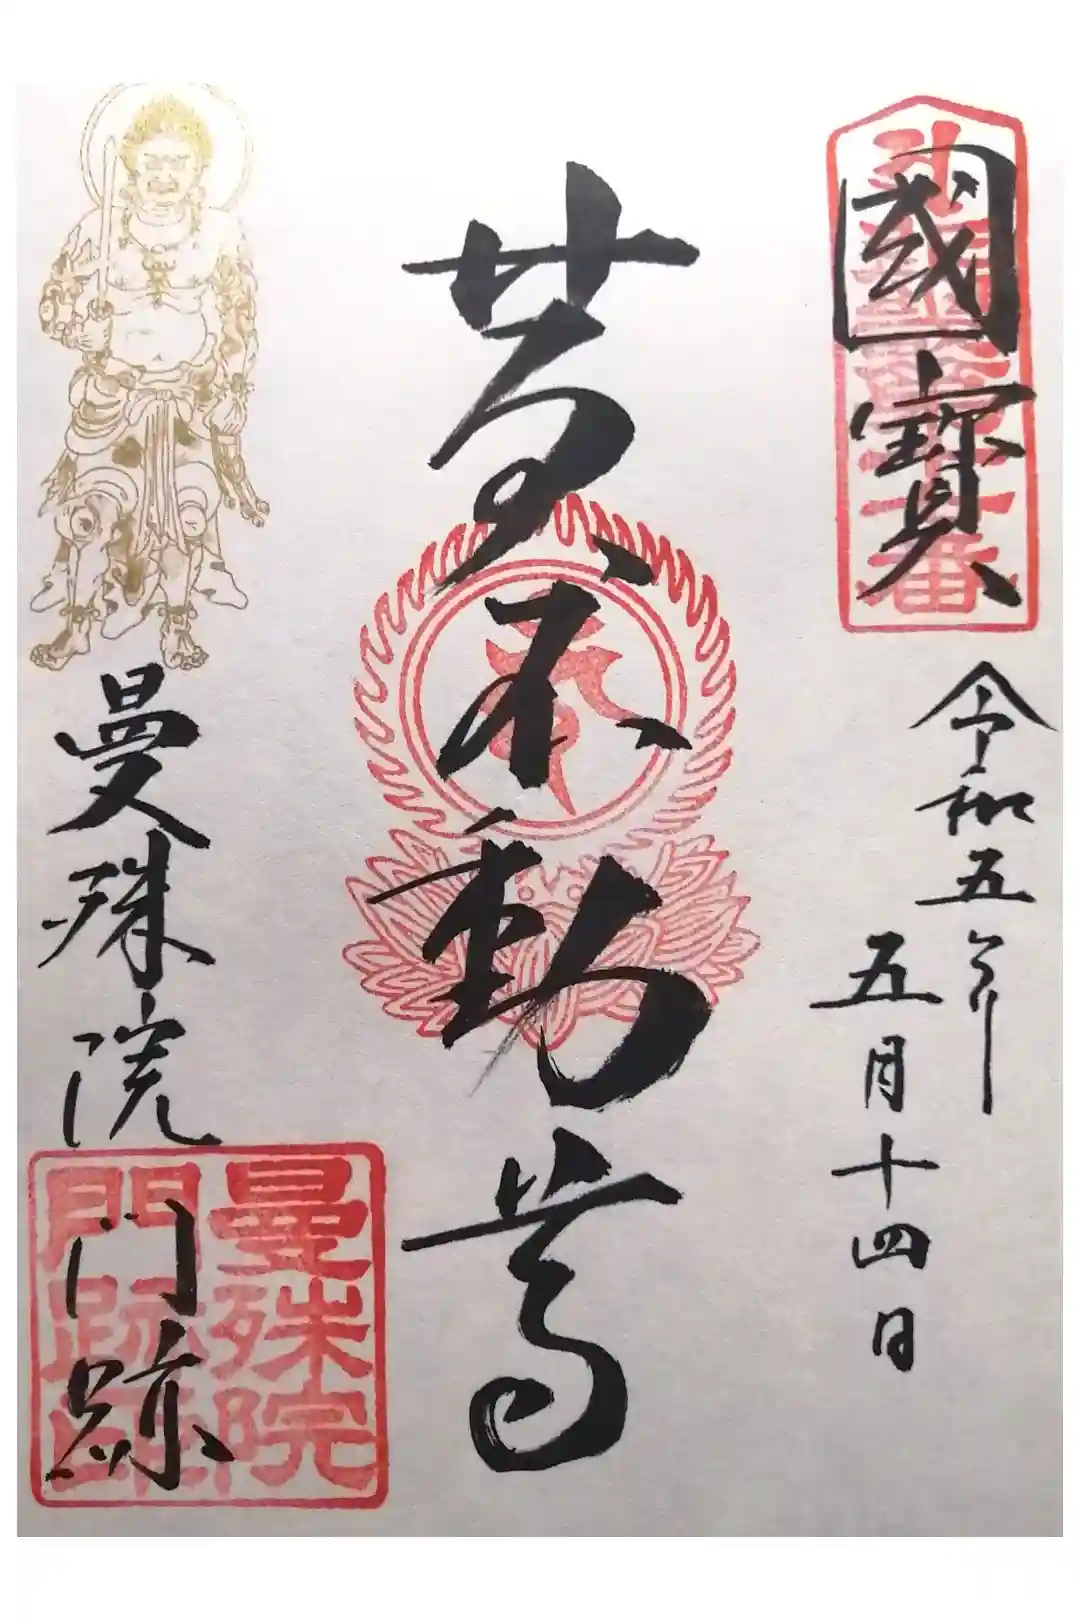 國寳
令和五年
五月十四日
黄不動尊
曼殊院
門跡
曼殊院
門跡印